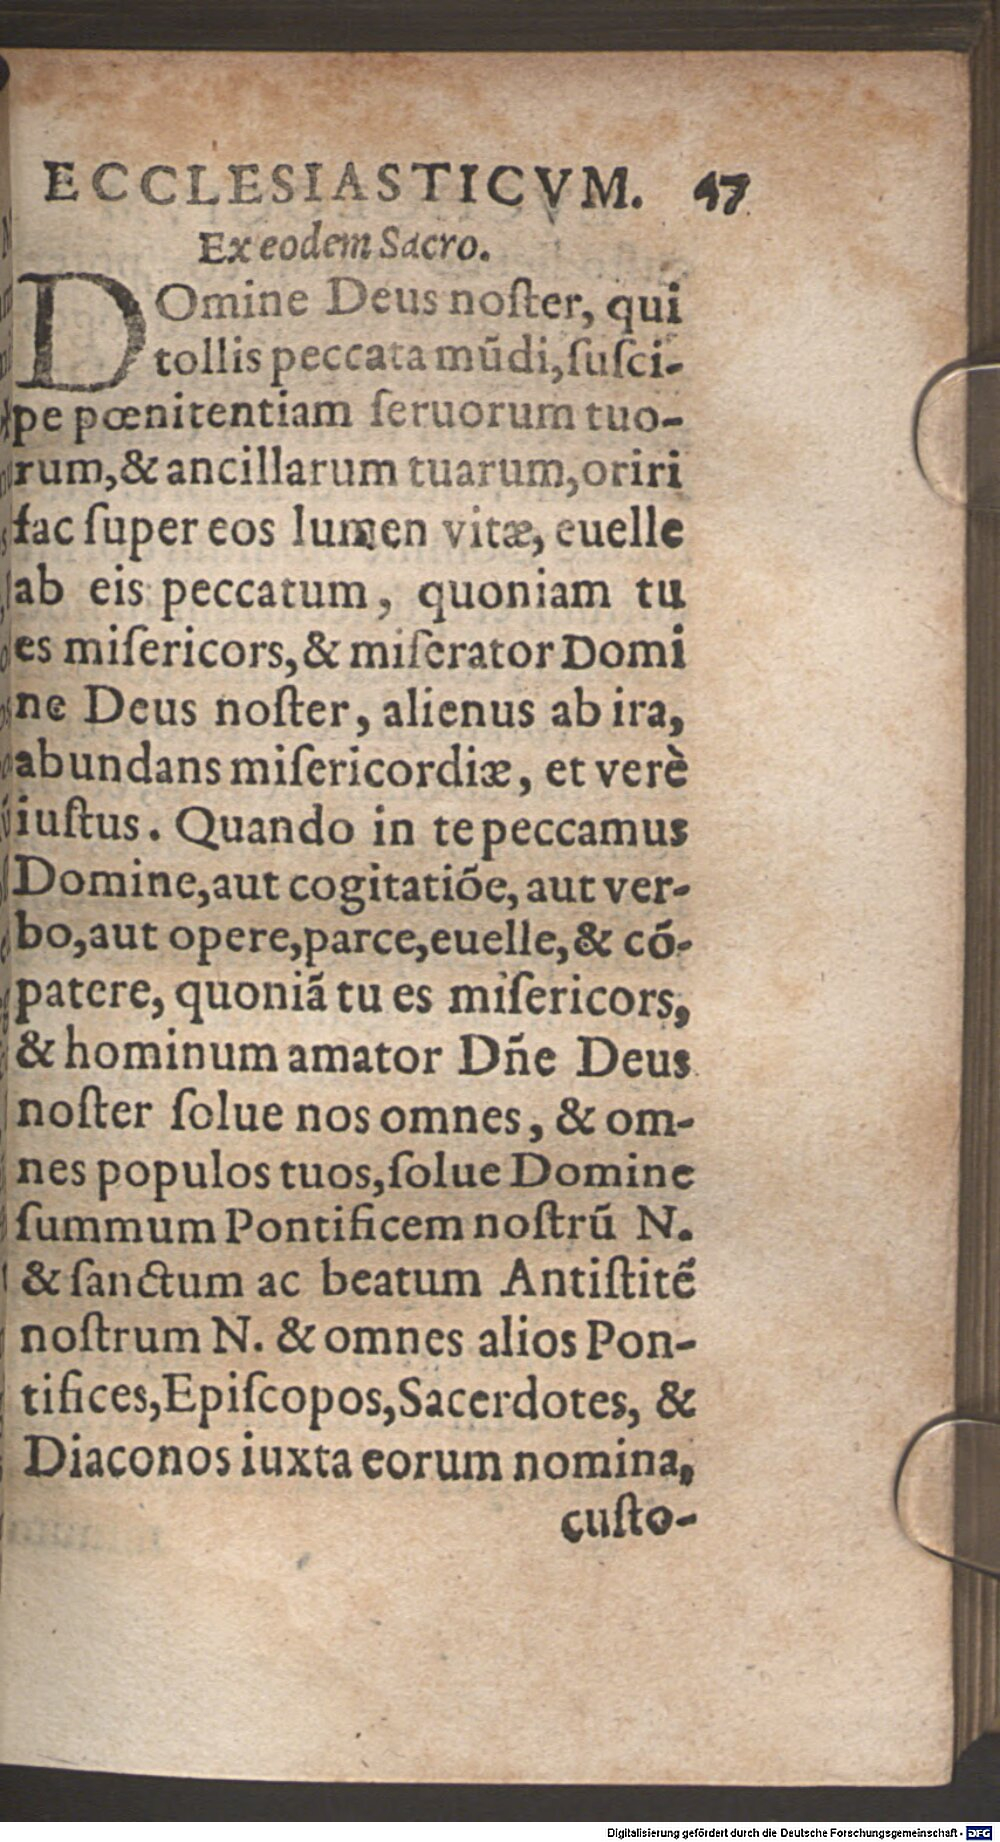 ECCLESIASTICVM. 47
Ex eodem Sacro.
DOmine Deus noſter, qui
tollis peccata mũdi, ſuſci-
pe pœnitentiam ſeruorum tuo-
rum, & ancillarum tuarum, oriri
fac ſuper eos lumen vitæ, euelle
ab eis peccatum, quoniam tu
es miſericors, & miſerator Domi
ne Deus noſter, alienus ab ira,
abundans miſericordiæ, et verè
iuſtus. Quando in te peccamus
Domine, aut cogitatiõe, aut ver-
bo, aut opere, parce, euelle, & cõ-
patere, quoniã tu es miſericors,
& hominum amator Dñe Deus
noſter ſolue nos omnes, & om-
nes populos tuos, ſolue Domine
ſummum Pontificem noſtrũ N.
& ſanctum ac beatum Antiſtitẽ
noſtrum N. & omnes alios Pon-
tifices, Epiſcopos, Sacerdotes, &
Diaconos iuxta eorum nomina,
cuſto-
Digitalisierung gefördert durch die Deutsche Forschungsgemeinschaft - DFG